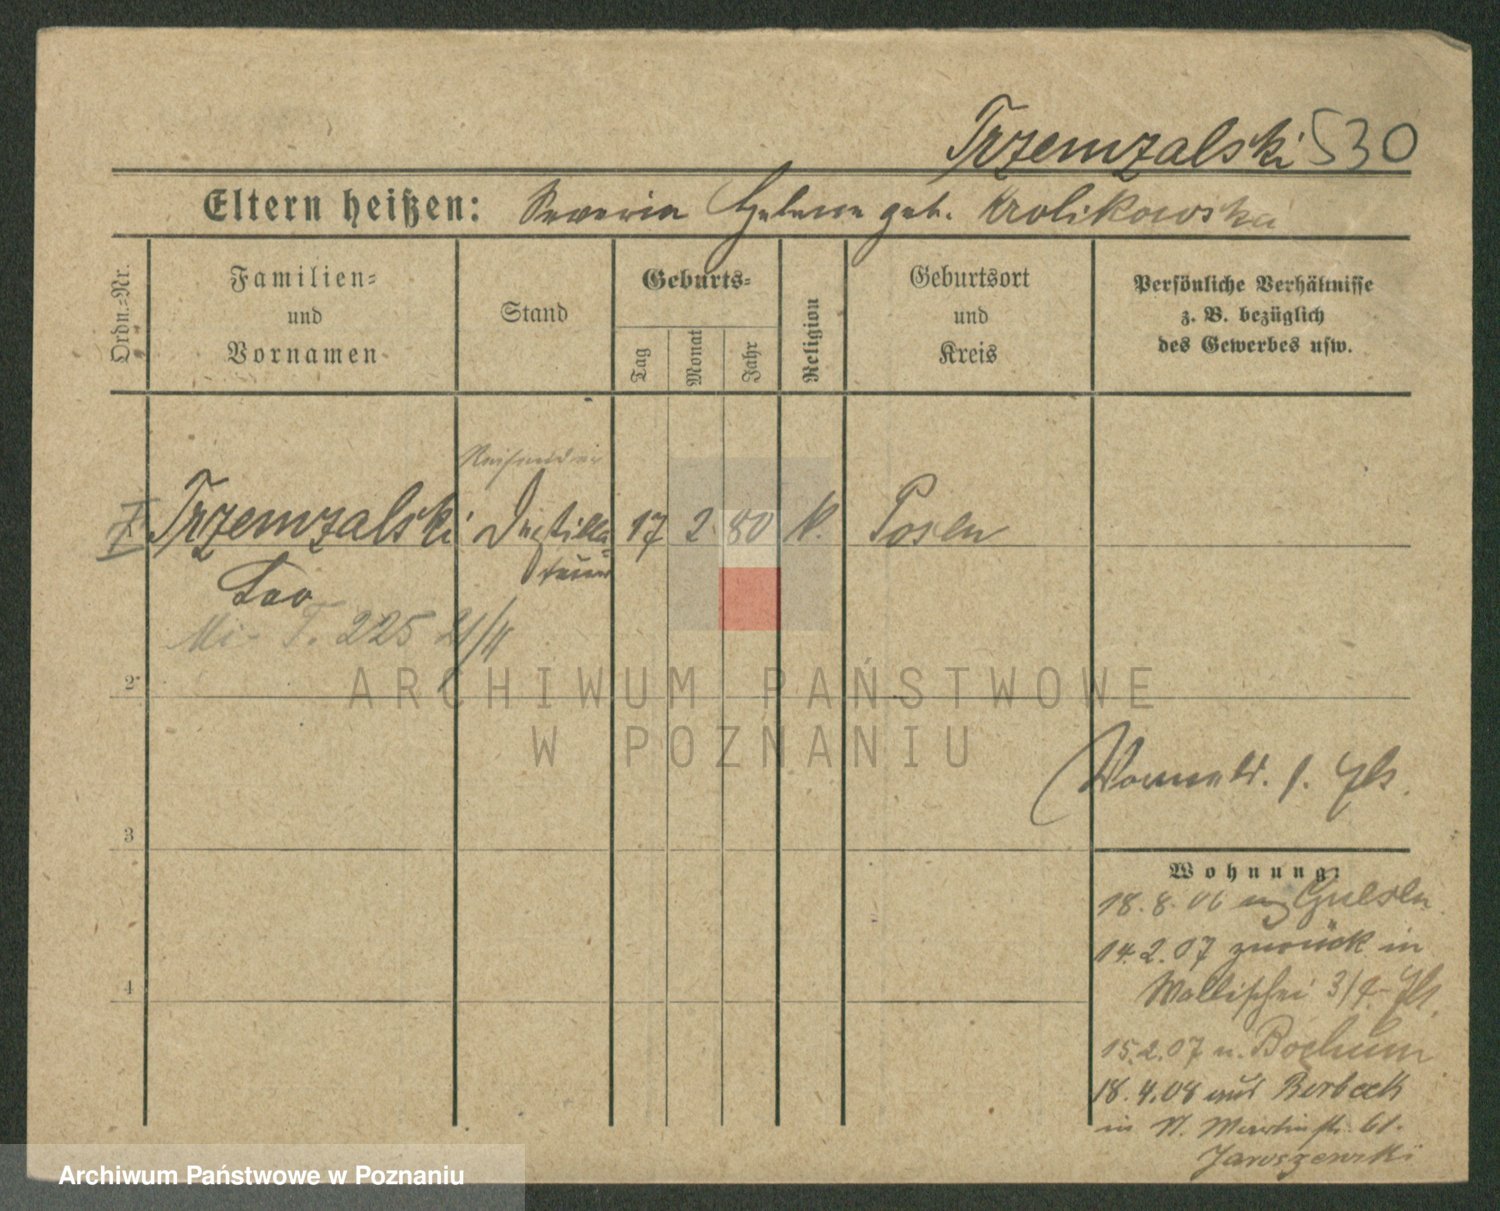 Trzemzalski 530
Eltern heißen: Severin Helene geb. Krolikowska
Ordn.-Nr.
Familien-
und
Vornamen
Stand
Geburts-
Tag
Monat
Jahr
Religion
Geburtsort
und
Kreis
Persönliche Verhältnisse
z. B. bezüglich
des Gewerbes usw.
Reisender
I Trzemzalski Destilla- 17 2 80 k. Posen
teur
Leo
Mi- T. 225 21/
2
ARCHIWUM PAŃSTWOWE
W POZNANIU
3
Wohnung:
18.8.06 Gnesen
14.2.07 zurück in
Wallischei 3/4
15.2.07 n. Bochum
18.4.08 aus Borbeck
in St. Martinstr. 61.
Jaroszewski
4
Archiwum Państwowe w Poznaniu